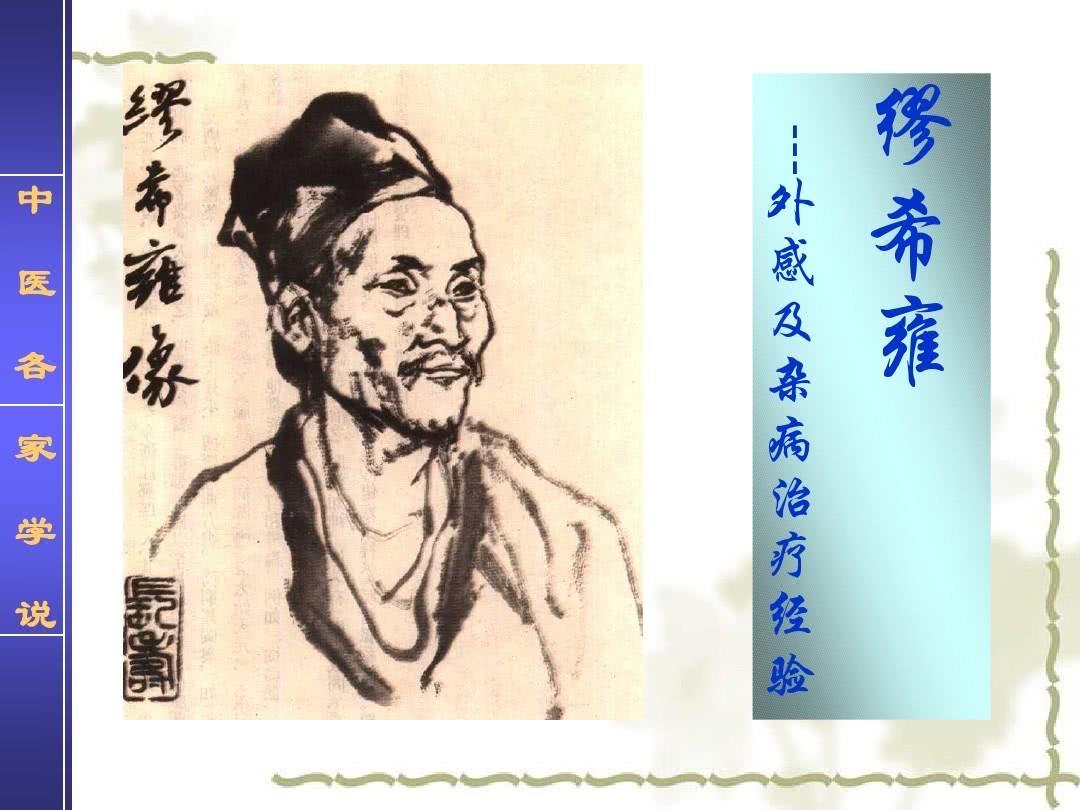 中医各家学说
缪希雍像
缪希雍
---外感及杂病治疗经验